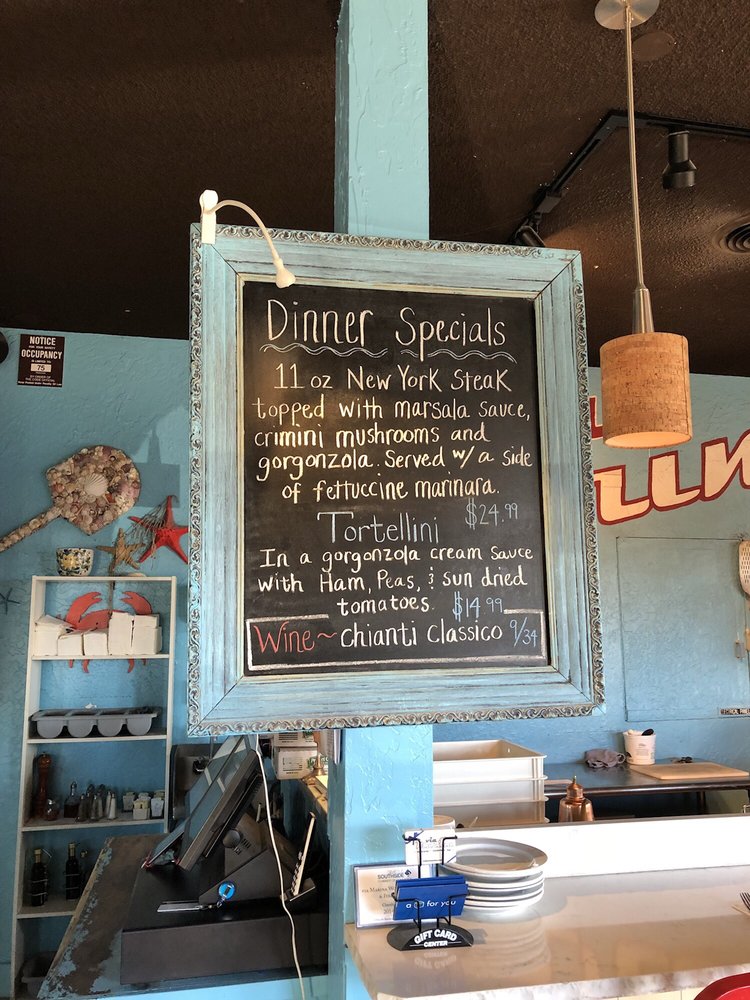 Dinner Specials
11 oz New York Steak
topped with marsala sauce,
crimini mushrooms and
gorgonzola. Served w/ a side
of fettuccine marinara.
$24.99
Tortellini
In a gorgonzola cream sauce
with Ham, Peas, & sun dried
tomatoes. $14.99
Wine~ chianti Classico 9/34
NOTICE
OCCUPANCY
IS LIMITED TO
75
via
SOUTHSIDE
for you
GIFT CARD
CENTER